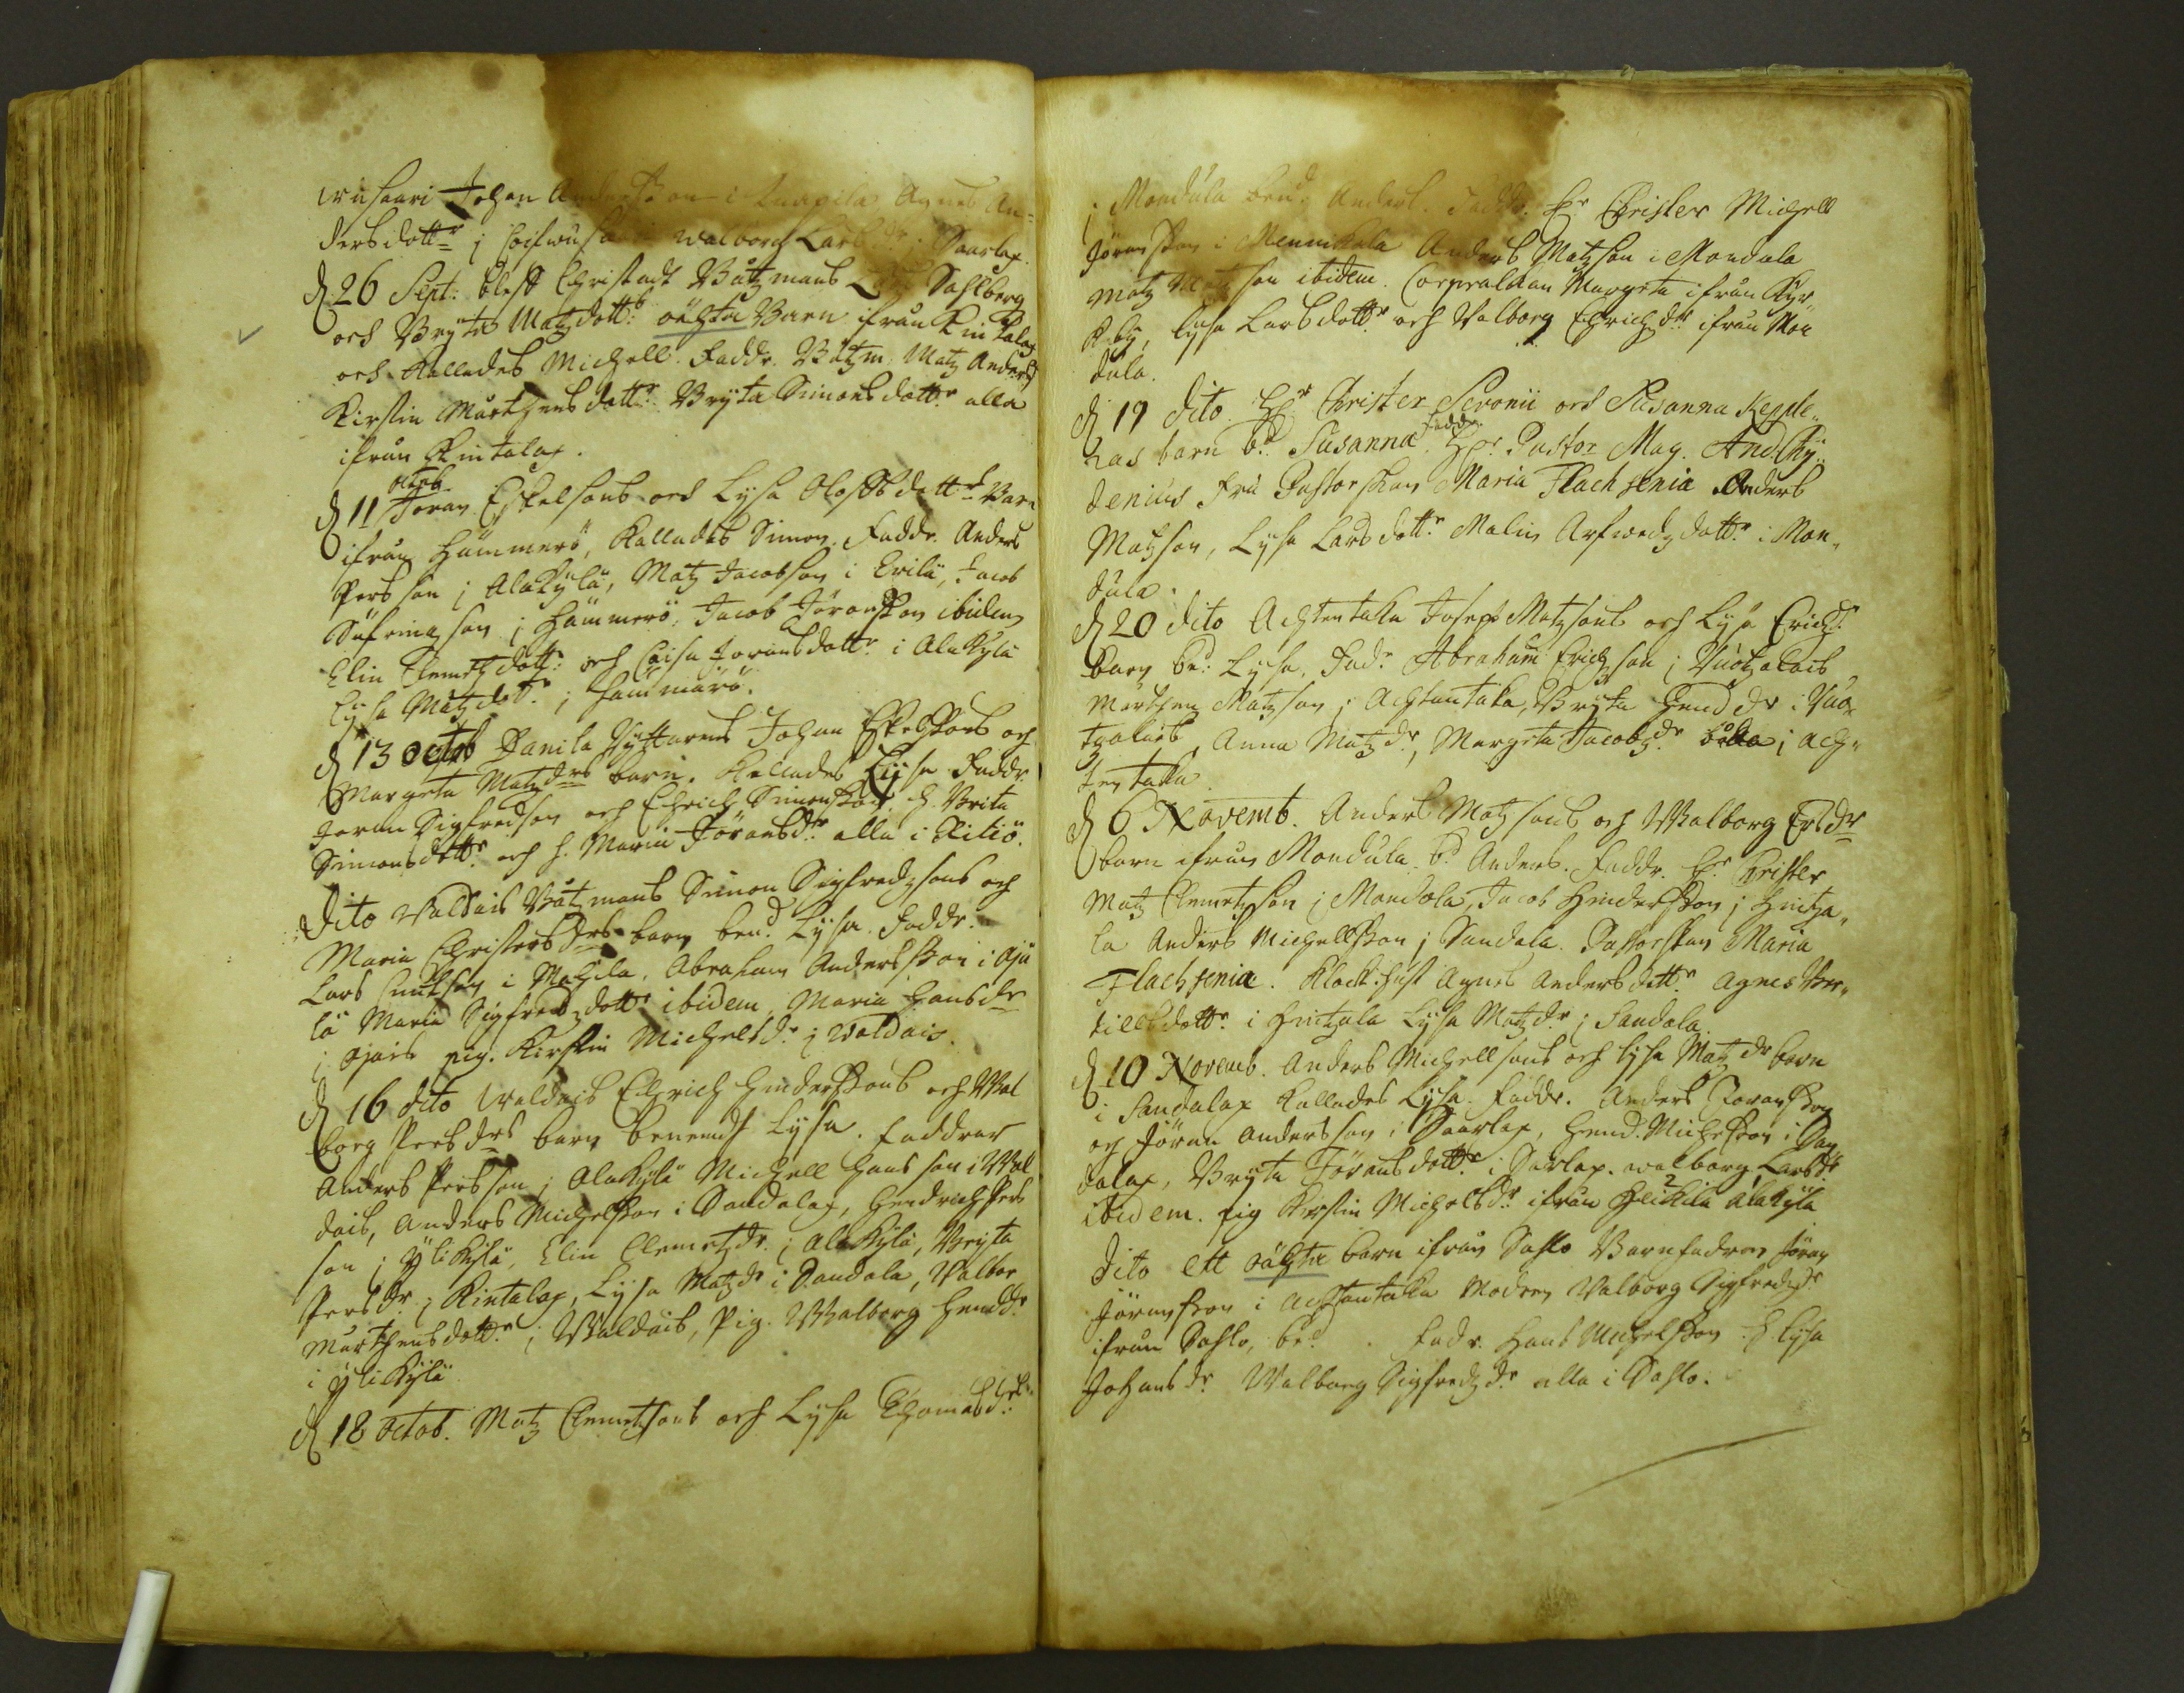 wusaari Johan Andersson i Laapila Agnes An=
dersdottr i walborg Lars dr. Saarlax.
d 26 Sept: bleff Christadt Båtzmans Sahlberg
och Bryta Matzdottrs oächta Barn ifrån Kintalax
och Kallades Michell. Faddr. Båtzm. Matz Anderss
Kirstin Mårthensdottr Bryta Simonsdottr alla
ifrån Kintalax.
octob.
d 11 Joran Eskelsons och Lysa Oloffsdottrs Barn
ifrån Hämmerö, Kallades Simon. Faddr. Anders
Persson j Alakylä, Matz Jacobson i Erilä, Jacob
Säfringson j Hämmerö, Jacob Jöransson ibidem
Elin Clemetzdottr och Caisa Joransdottr i Alakylä
Lysa Matzdotr. j Hämmärö.
d 13 Octob Danila Ryttarens Johan Eskelssons och
Margeta Matzdrs barn. Kallades Lysa Faddr.
Joran Sigfredson och Ehrich Simonsson, h. Brita
Simonsdottr och h. Maria Jöransdr alla i Kiliö.
Dito Valdais Båtzmans Simon Sigfredzsons och
Maria Christersdrs barn ben.d Lysa. Faddr.
Lars Cnutson i Matzila. Abraham Andersson i Ajä
lä Maria Sigfredzdottr ibidem, Maria Hansdr
i Ojais pig. Kirstin Michelsdr j Waldais.
d 16 dito Waldais Ehrich Hinderssons och Wal
borg Persdrs barn benemdt Lysa. Faddrar
Anders Persson j Alakylä Michell Hans son i Wal
dais, Anders Michelsson i Sandalax, Hendrich Pers
son j Ylikylä, Elin Clemetzdr. j Alakylä, Bryta
Persdr. j Kintalax, Lysa Matzdr i Sandala, Walbor
Mårthensdottr j Waldais, Pig. Walborg Hendr.
i Ylikylä
d 18 octob. Matz Clemetsons och Lysa Thomasdrs
j Mondula ben.d Anders. Faddr. Hr Christer Michell
Jöransson i Mennikala Anders Matzson i Mondula
Matz Matzson ibidem. Corpralskan Margeta ifrån Kyr
kby, Lysa Larsdottr och Valborg Ehrichzdr ifrån Mon
dula.
d 19 dito. Hr Christer Seronii och Susanna Kepple=
ras barn b.d Susanna Faddr. Hr Pastor Mag. And. Ky=
denius Fru Pastorskan Maria Flachsenia Anders
Matzson, Lysa Larsdottr Malin Arfwedzdottr i Mon=
dula.
d 20 dito Achtentaka Joseph Matzsons och Lysa Erichzdrs
barn be.d Lysa. Fadr. Abraham Erichzson j Vuotzalais
Mårthen Matzson j Achtentaka, Bryta Henddr i Vuo
tzalais, Anna Matzdr, Margeta Jacobzdr. båda j Ach=
tentaka.
d 6 Novemb. Anders Matzsons och Walborg Ersdrs
barn ifrån Mondula b.d Anders. Faddr. Hr. Christer
Matz Clemetzson j Mondola, Jacob Hindersson j Heitza=
la Anders Michellsson j Sandala. Pastorskan Maria
Flachsenia. Klock. hust Agnes Andersdottr Agnes Ber=
tillsdottr i Heitzala Lysa Matzdr. j Sandola.
d 10 Novemb. Anders Michellsons och Lysa Matzdrs barn
i Sandalax Kallades Lysa. Faddr. Anders Joransson
och Jöran Andersson i Saarlax, Hend. Michelsson i San
dalax, Bryta Jöransdottr i Sarlax. walborg Larsdr
ibidem. pig Kirstin Michelsdr ifrån Heikilä Alakylä
Dito ett oächta barn ifrån Sahlo Barnfadren Jöran
Jöransson i Achtantaka Modren Valborg Sigfredzdr
ifrån Sahlo, be.d . Fadr. Hans Michelsson h. Lysa
Johansdr. Walborg Sigfredzdr. alla i Sahlo.